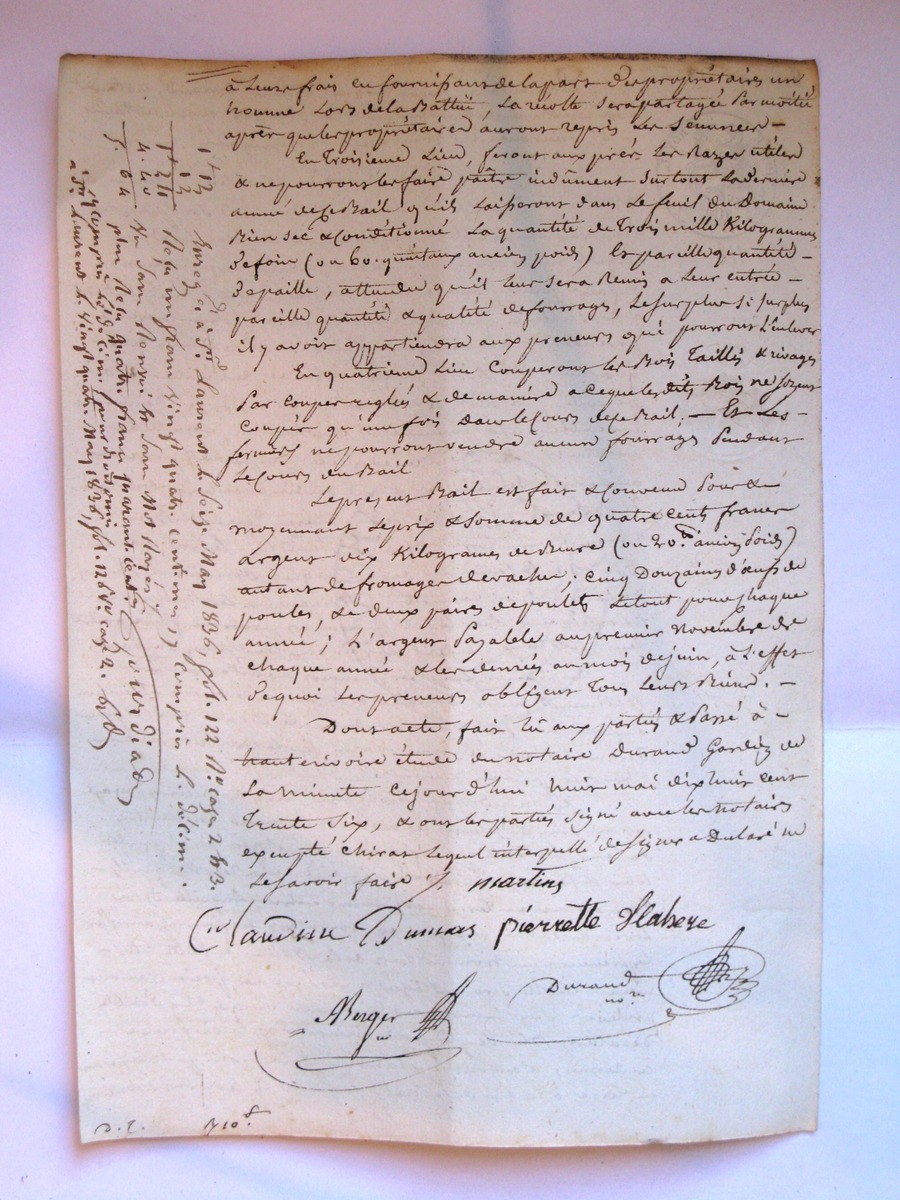 à Leurs frais en fournissant de la part des propriétaires un
homme Lors de la Battüe, La récolte sera partagée Par moitié
après que les propriétaires auront repris Les Semences —
En Troisieme Lieu, feront aux prés Les Razes utiles
& ne pourront les faire paître indûment Surtout La derniere
année de ce Bail qu'ils Laisseront dans Le feuil du Domaine
Bien sec & Conditionné La quantité de Trois mille Kilogrammes
de foin (ou 60. quintaux anciens poids) Et pareille quantité —
de paille, attendu qu'il Leur sera Remis a Leur entrée —
pareille quantité & qualité de fourrages, Le surplus si surplus
il y avoit appartiendra aux preneurs qui pourront L'enlever
En quatrieme Lieu Couperont Les Bois Taillis & rivages
Par coupes reglées & de maniere a ce que les dits Bois ne soient
Coupés qu'une fois dans le Cours de ce Bail; — Et Les
fermiers ne pourront vendre aucuns fourrages Pendant
Le Cours du Bail
Le present Bail est fait & Convenu Pour &
moyennant Le prix & Somme de quatre cents francs
argent dix Kilogrames de Beurre (ou 20 anciens Poids)
autant de fromages de vaches, cinq Douzaines d'œufs de
poules, & deux paires de poulets Le tout pour chaque
année; L'argent Payable au premier Novembre de
chaque année & les denrées au mois de juin, à L'effet
de quoi Les preneurs obligent Tous Leurs Biens. —
Dont acte, fait Lu aux parties & Passé à —
hauterivoire étude du notaire Durand Gardien de
La minute Cejourd'hui huit mai dix huit cent
Trente Six, & ont les parties signé avec les notaires
excepté Chirat Lequel interpellé de Signer a Declaré ne
Le savoir faire /. martins
Claudine Dumas pierrette
Durand
nore
Berger
D. E.
Enreg. à St. Laurent le Seize May 1836, fol. 122 Ro. case 2 & 3.
Reçu un franc vingt quatre centimes y compris le décime.
4. 40
64
plus Reçu quatre francs quarante centimes
y compris le décime
a St. Laurent le vingt quatre May 1836 fol. 126 Vo. case 2.